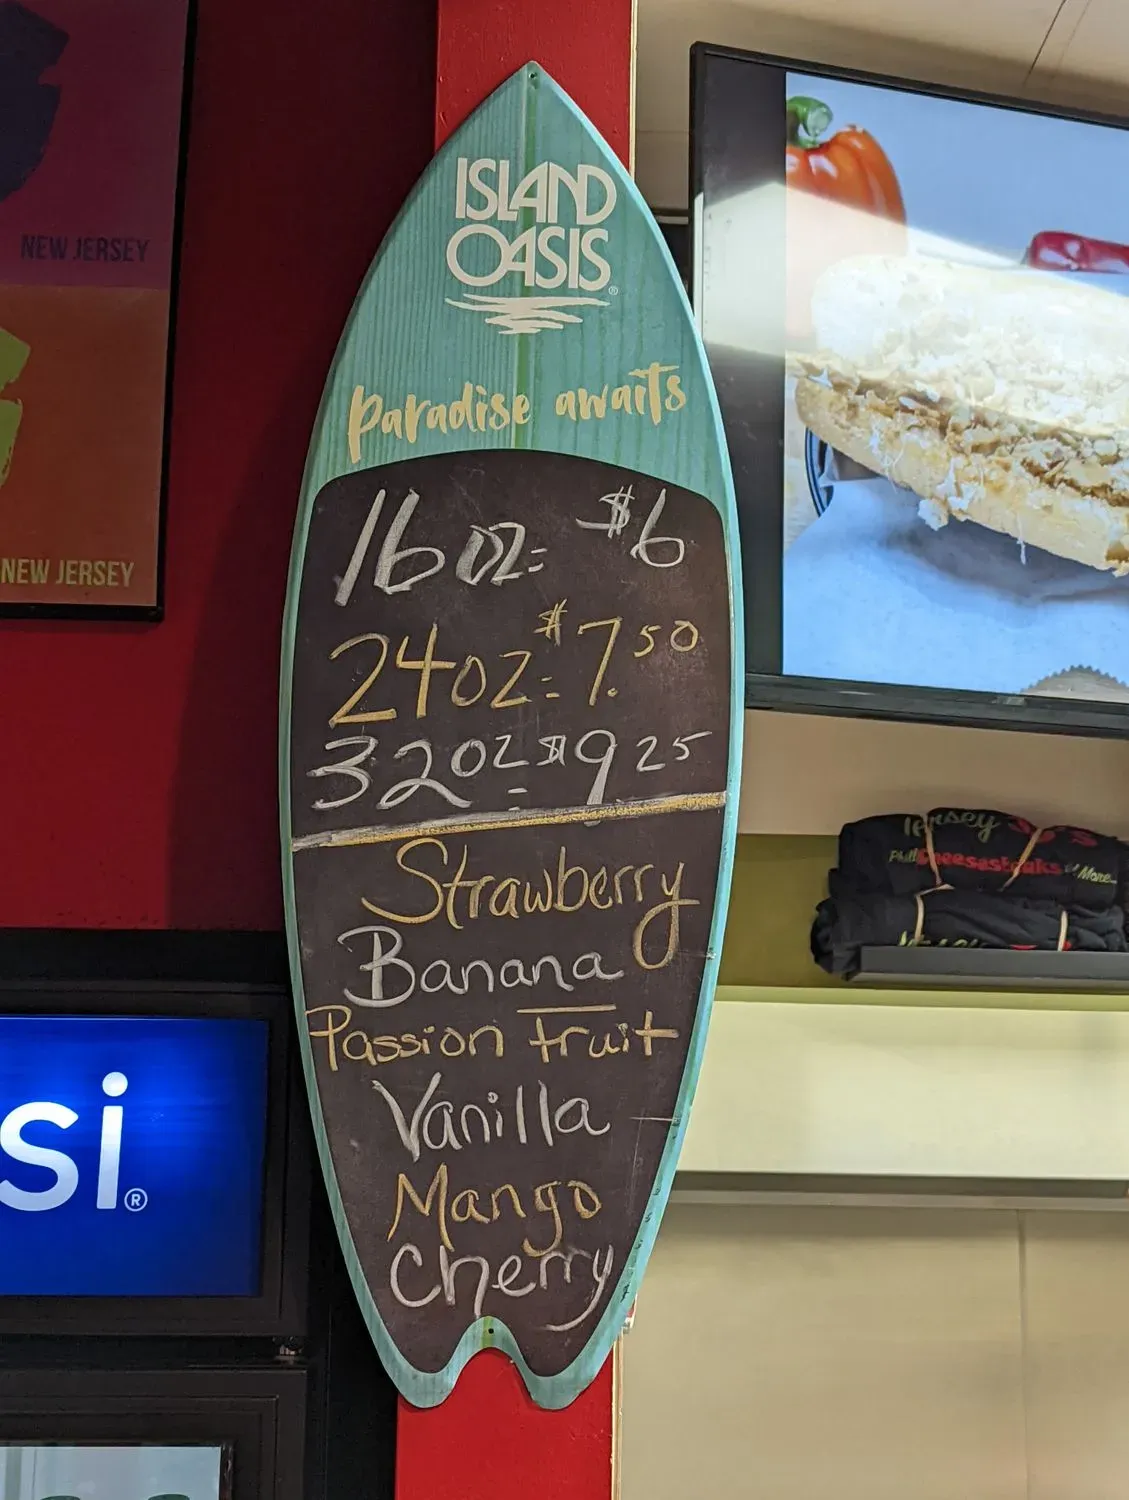 NEW JERSEY
NEW JERSEY
ISLAND
OASIS®
paradise awaits
16 oz = $6
24 oz = $7.50
32 oz = $9.25
Strawberry
Banana
Passion fruit
Vanilla
Mango
Cherry
si®
Jersey
Cheesesteaks & More...